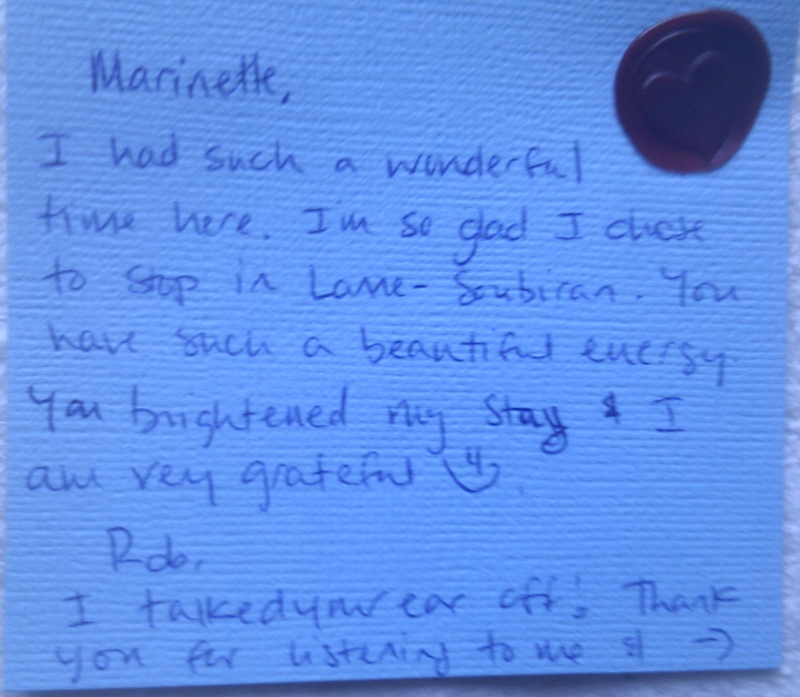 Marinette,
I had such a wonderful
time here. I'm so glad I chose
to stop in Lanne-Soubiran. You
have such a beautiful energy.
You brightened my stay & I
am very grateful
Rob,
I talked your ear off! Thank
you for listening to me & →